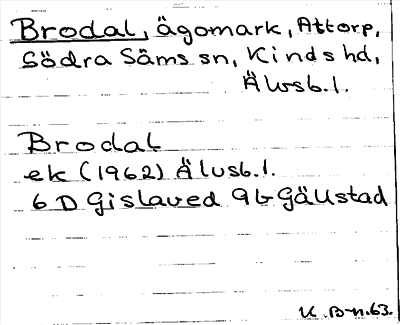 Brodal, ägomark, Attorp,
Södra Säms sn, Kinds hd,
Älvsb.l.
Brodal
ek (1962) Älvsb.l.
6 D Gislaved 9 b Gällstad
K.B-n.63.